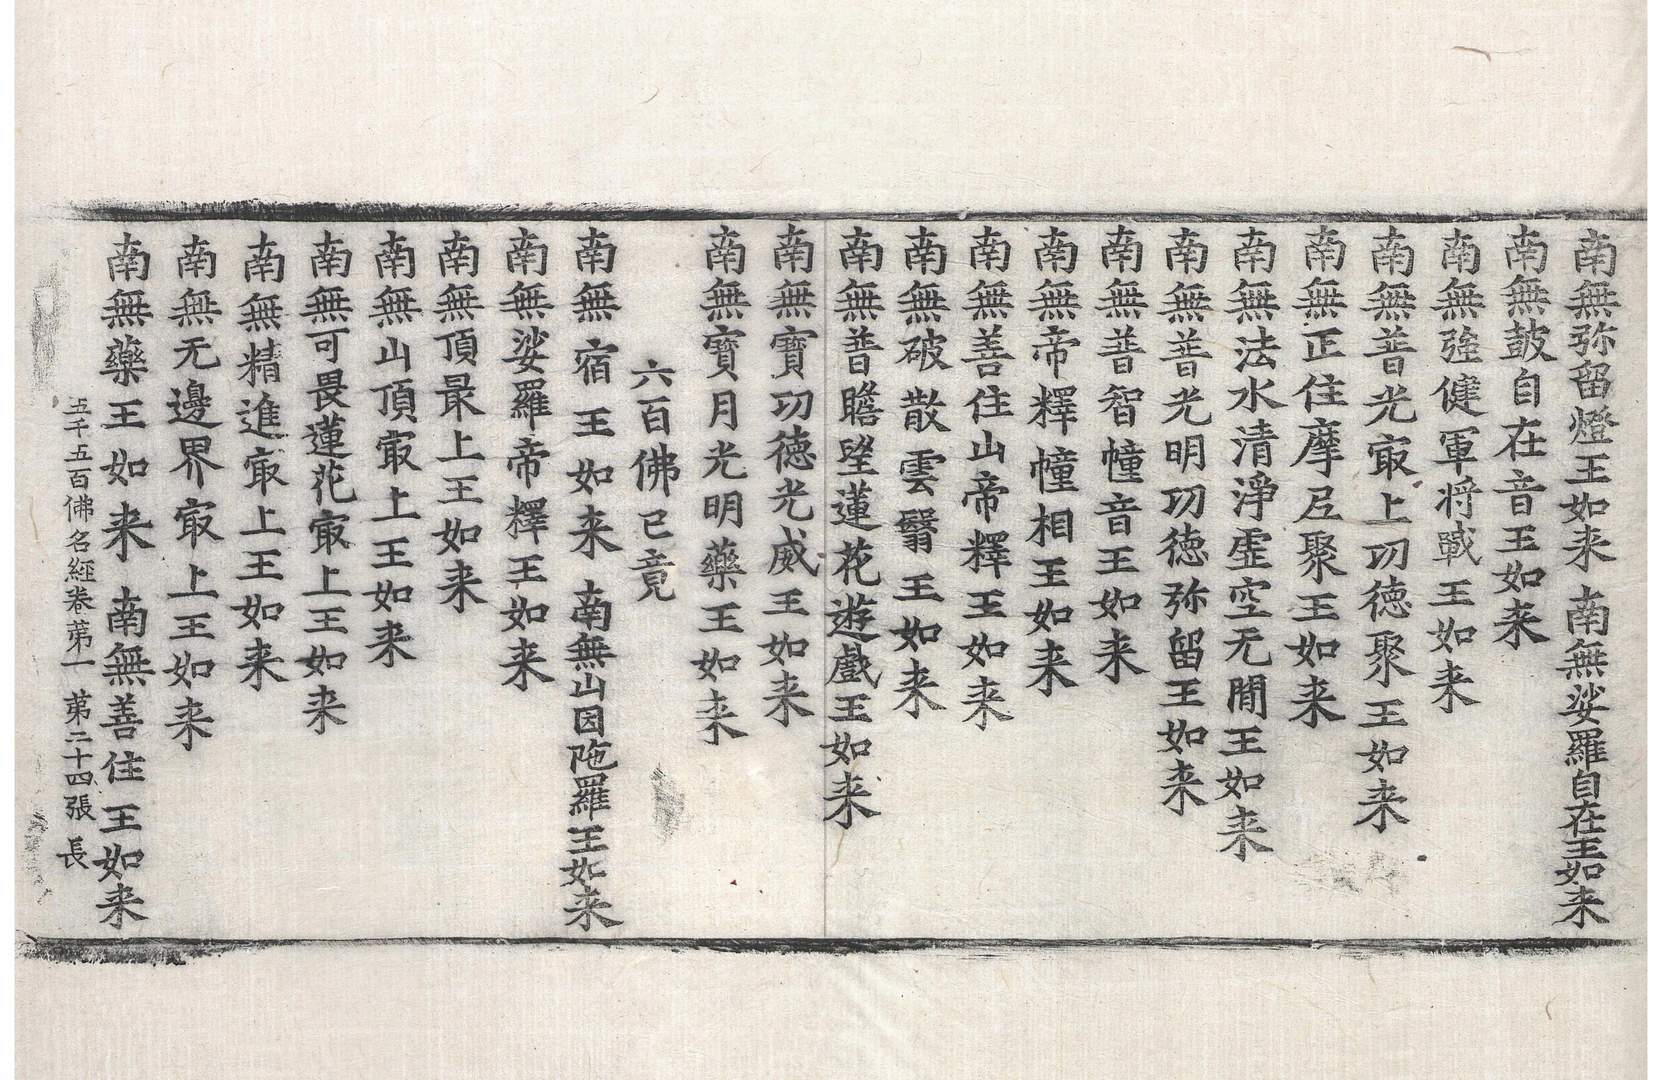 南無弥留燈王如来　南無娑羅自在王如来
南無鼓自在音王如来
南無強健軍将戰王如来
南無普光㝡上功徳聚王如来
南無正住摩尼聚王如来
南無法水清淨虛空无閒王如来
南無普光明功徳弥留王如来
南無普智幢音王如来
南無帝釋幢相王如来
南無善住山帝釋王如来
南無破散雲翳王如来
南無普瞻望蓮花遊戲王如来
南無寶功徳光威王如来
南無寶月光明藥王如来
六百佛已竟
南無宿王如来　南無山因陁羅王如来
南無娑羅帝釋王如来
南無頂最上王如来
南無山頂㝡上王如来
南無可畏蓮花㝡上王如来
南無精進㝡上王如来
南無无邊界㝡上王如来
南無藥王如来　南無善住王如来
五千五百佛名經卷苐一　苐二十四張　長